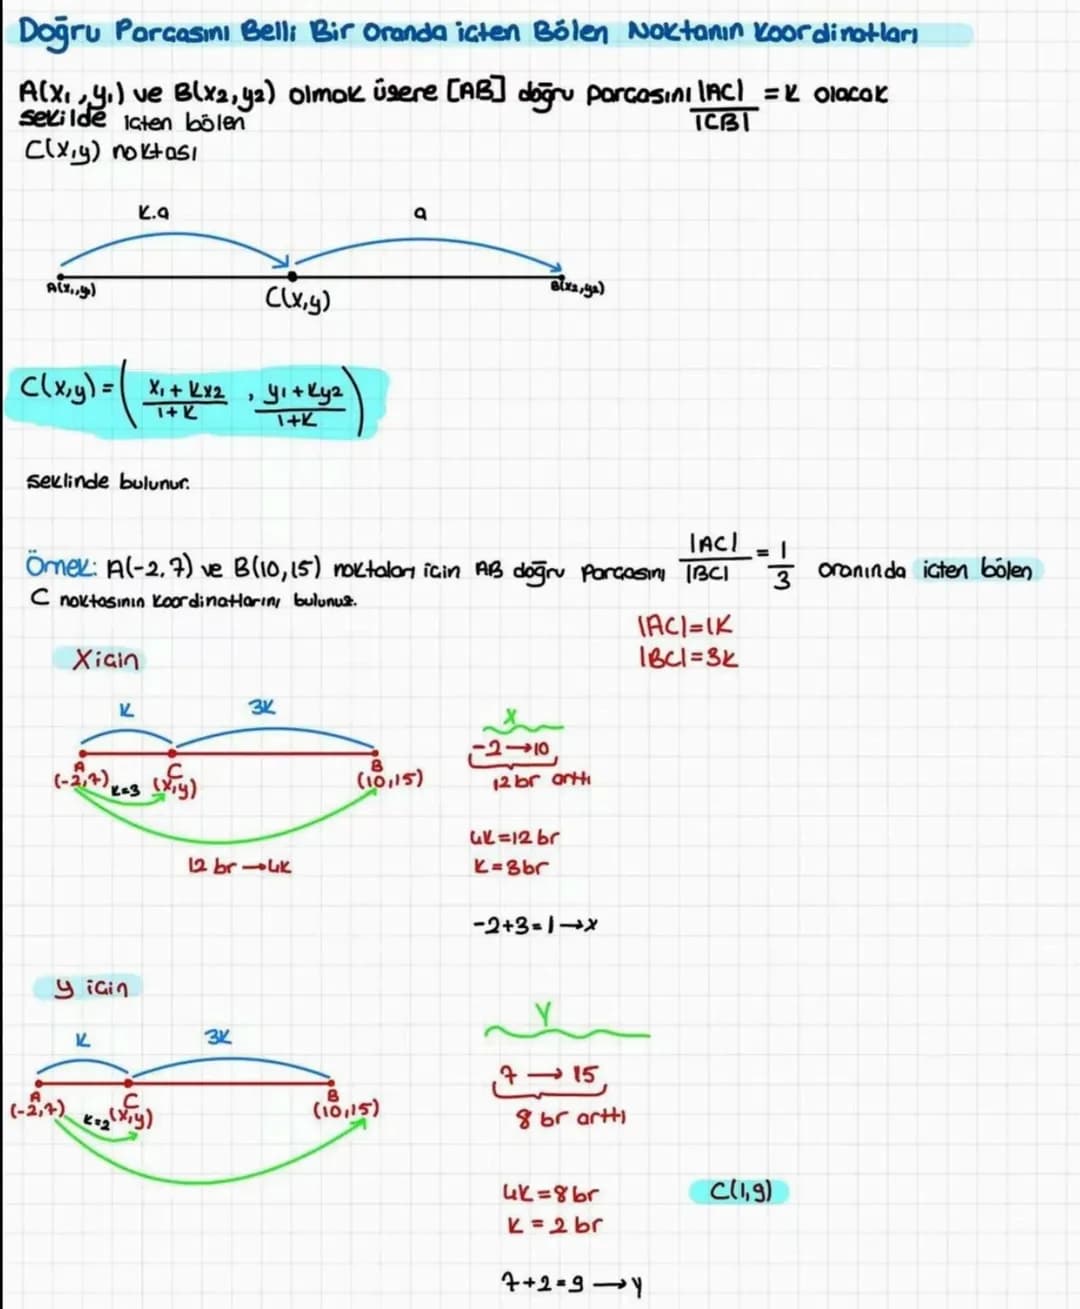 Doğru Parçasını Belli Bir Oranda içten Bölen Noktanın Koordinatları
A(x₁,y₁) ve B(x₂,y₂) olmak üzere [AB] doğru parçasını |AC| / |CB| = k olacak
şekilde içten bölen
C(x,y) noktası
k.a a
A(x₁,y₁) C(x,y) B(x₂,y₂)
C(x,y) = ( x₁ + kx₂ / 1+k , y₁ + ky₂ / 1+k )
şeklinde bulunur.
Örnek: A(-2,7) ve B(10,15) noktaları için AB doğru parçasını |AC| / |BC| = 1/3 oranında içten bölen
C noktasının koordinatlarını bulunuz.
|AC|=1k
|BC|=3k
X için
k 3k
A C B
(-2,7) k=3 (x,y) (10,15)
12 br →4k
x
-2→10
12 br arttı
4k=12 br
k=3br
-2+3=1→x
y için
k 3k
A C B
(-2,7) k=2 (x,y) (10,15)
Y
7 → 15
8 br arttı
4k=8br
k = 2 br
C(1,9)
7+2=9 →y